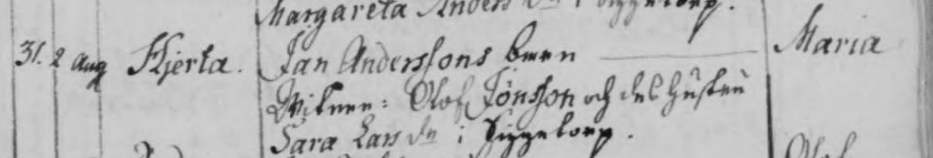 Margareta Anders dr i Siggetorp.
31. 2 Aug Hjerta. Jan Anderssons barn Maria
Wittnen: Olof Jönsson och des hustru
Sara Lars dr i Siggetorp.
Olof